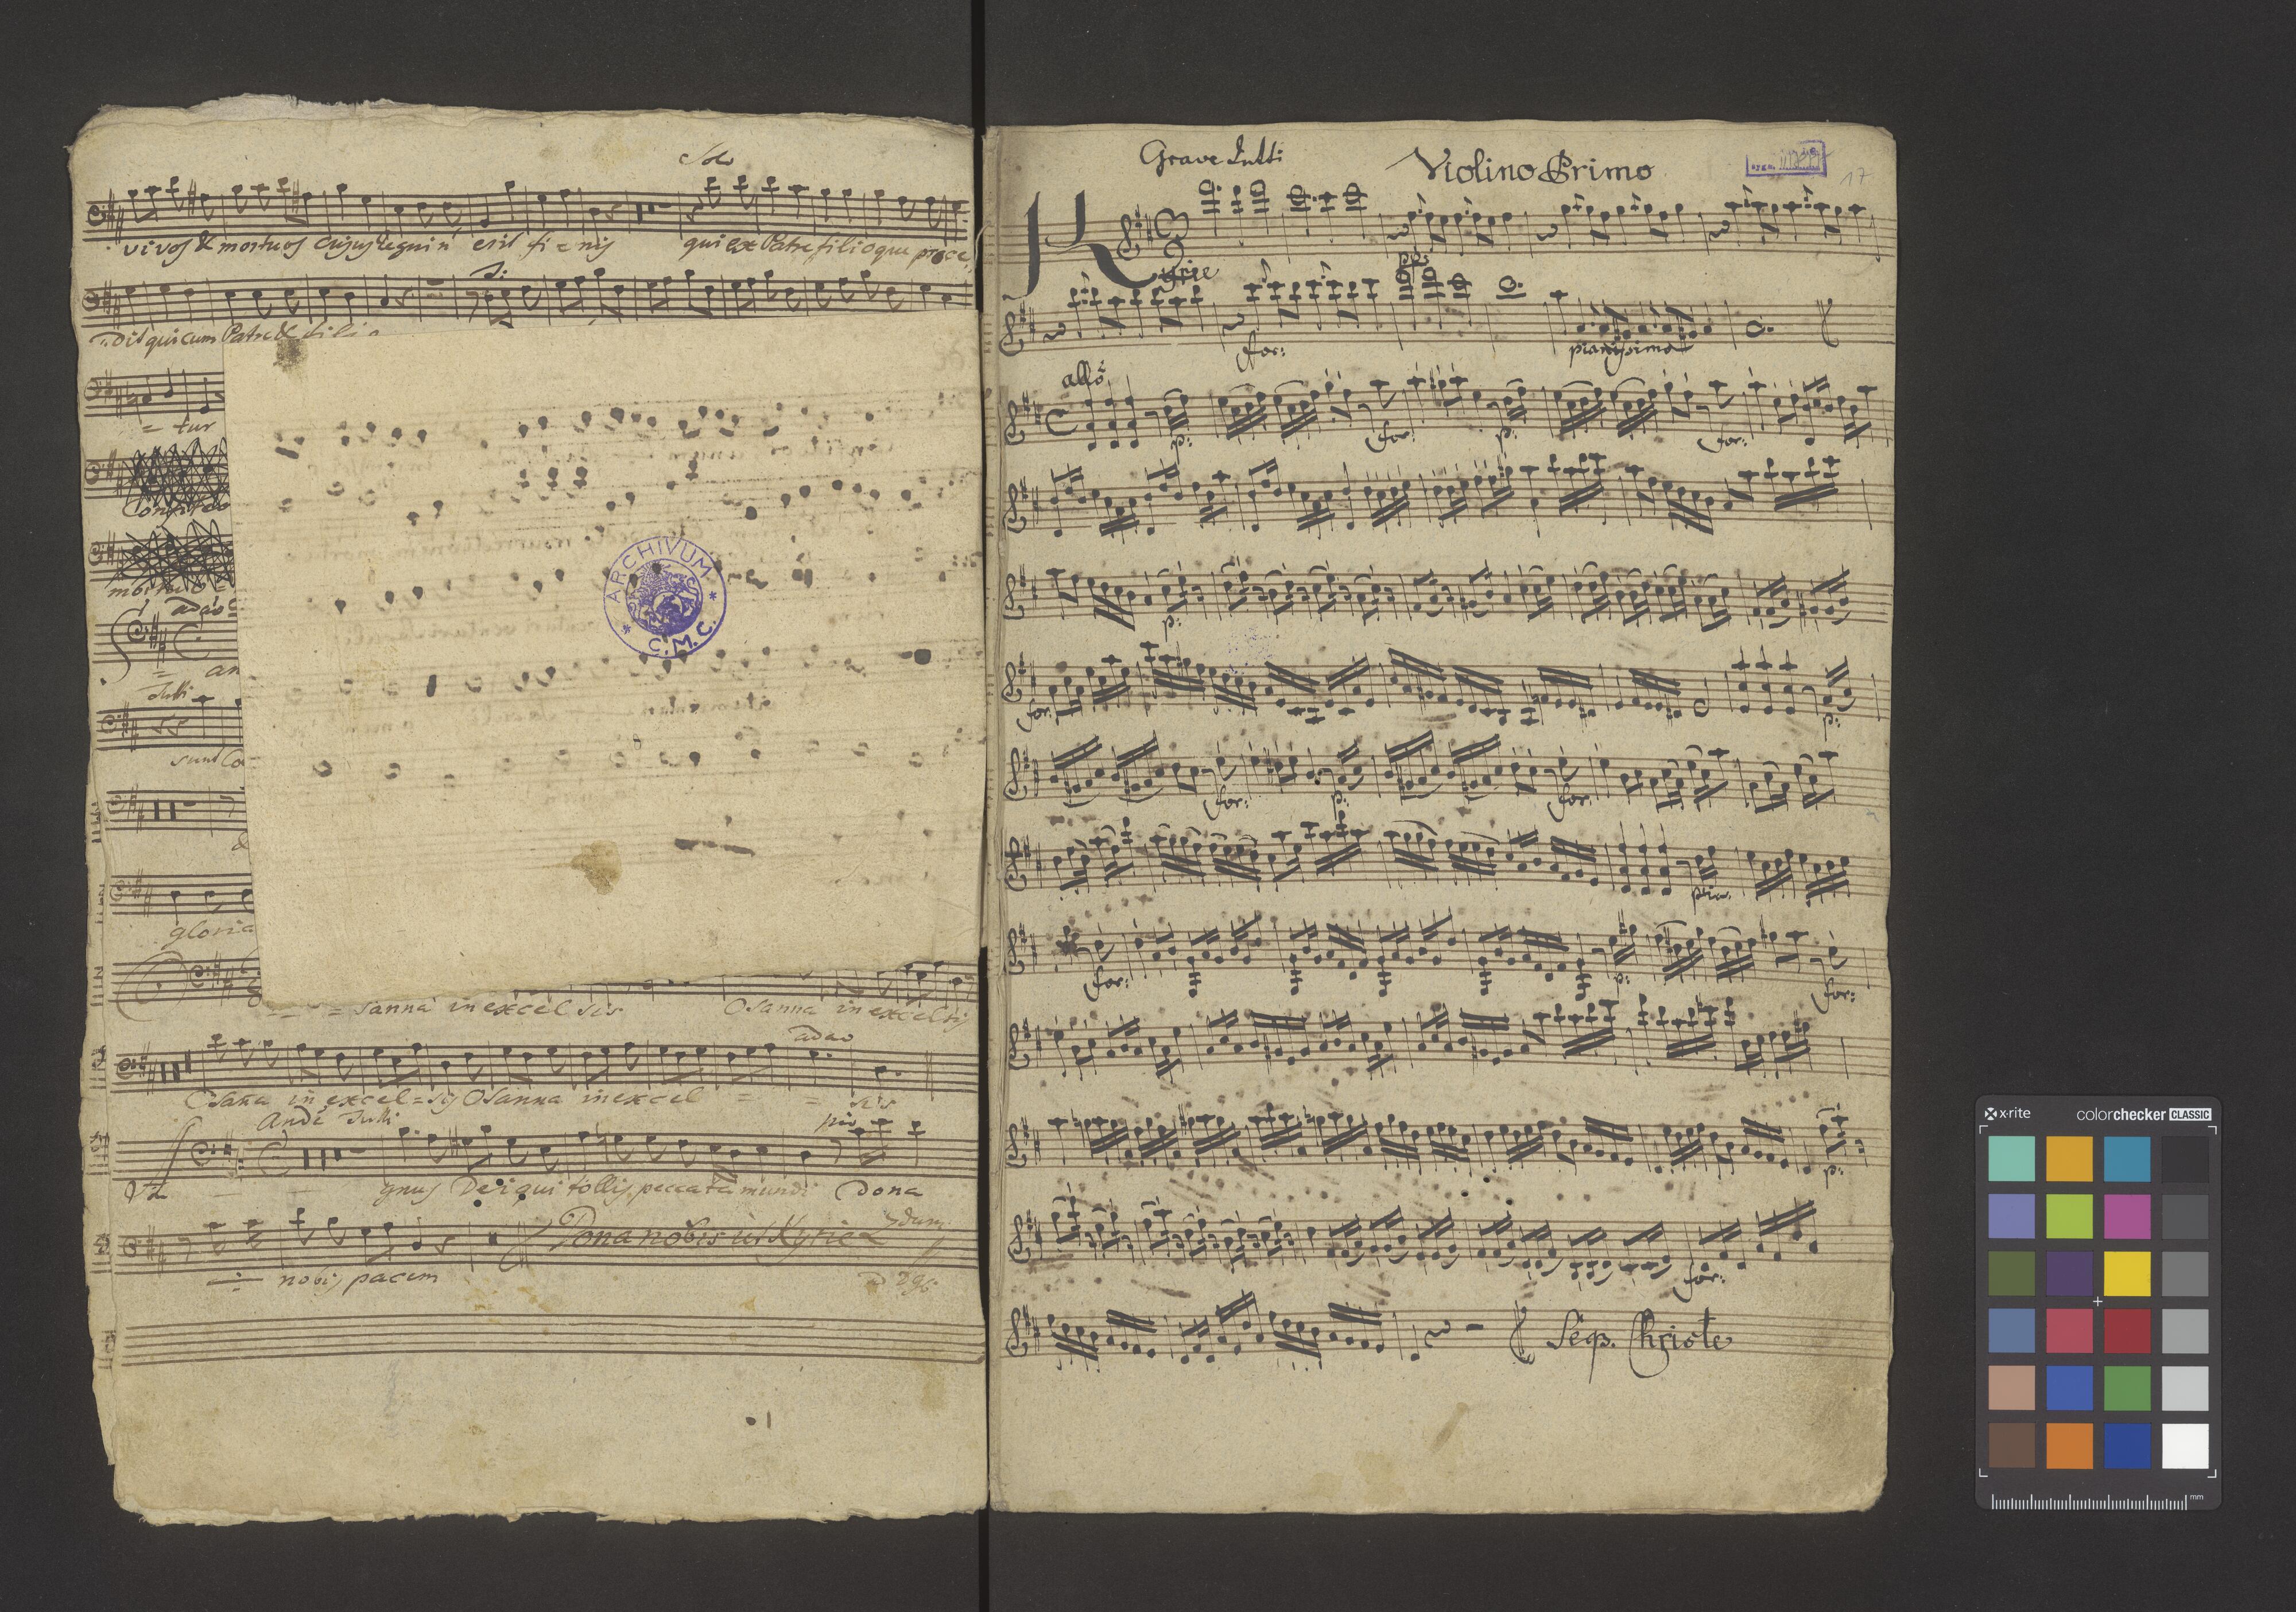 Solo
vivos & mortuos cujus regni n̄ erit fi = nis qui ex Patre filioque proce
T:
dit qui cum Patre & filio
= tur
Confiteo
mortuo
adaō
= am
Tutti
sunt Coe
gloria
= = = sanna in excel sis Osanna in excelsis
adaō
Osaña in excel = sis Osanna in excel = = sis
Andē Tutti pia
gnus Dei qui tollis peccata mundi Dona
Dona nobis ut Kyrie
nobis pacem
ARCHIVUM
C.M.C.
Grave Tutti Violino Primo
17
Kyrie
pp:
for: pianissimo
allō
p: for: p: for:
p:
for: p:
for: p: for:
pia.
for: p: for:
p:
for:
Seqs. Christe
x-rite colorchecker CLASSIC
mm